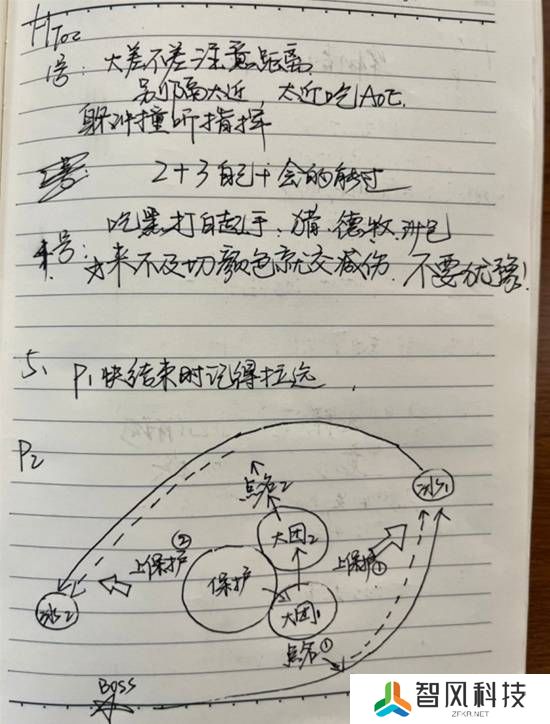 HToc
1号: 大差不差 注意距离
别隔太近, 太近吃AOE.
躲冲撞听指挥
2+3 自己十会的能过
吃黑打白起手, 猎、德、牧
4号: 来不及切颜色就交减伤. 不要犹豫!
5、 P1快结束时记得拉远.
P2
点名2
冰1
大团2
上保护②
保护
上保护①
冰2
大团1
点名①
BOSS
智风科技
ZFKR.NET